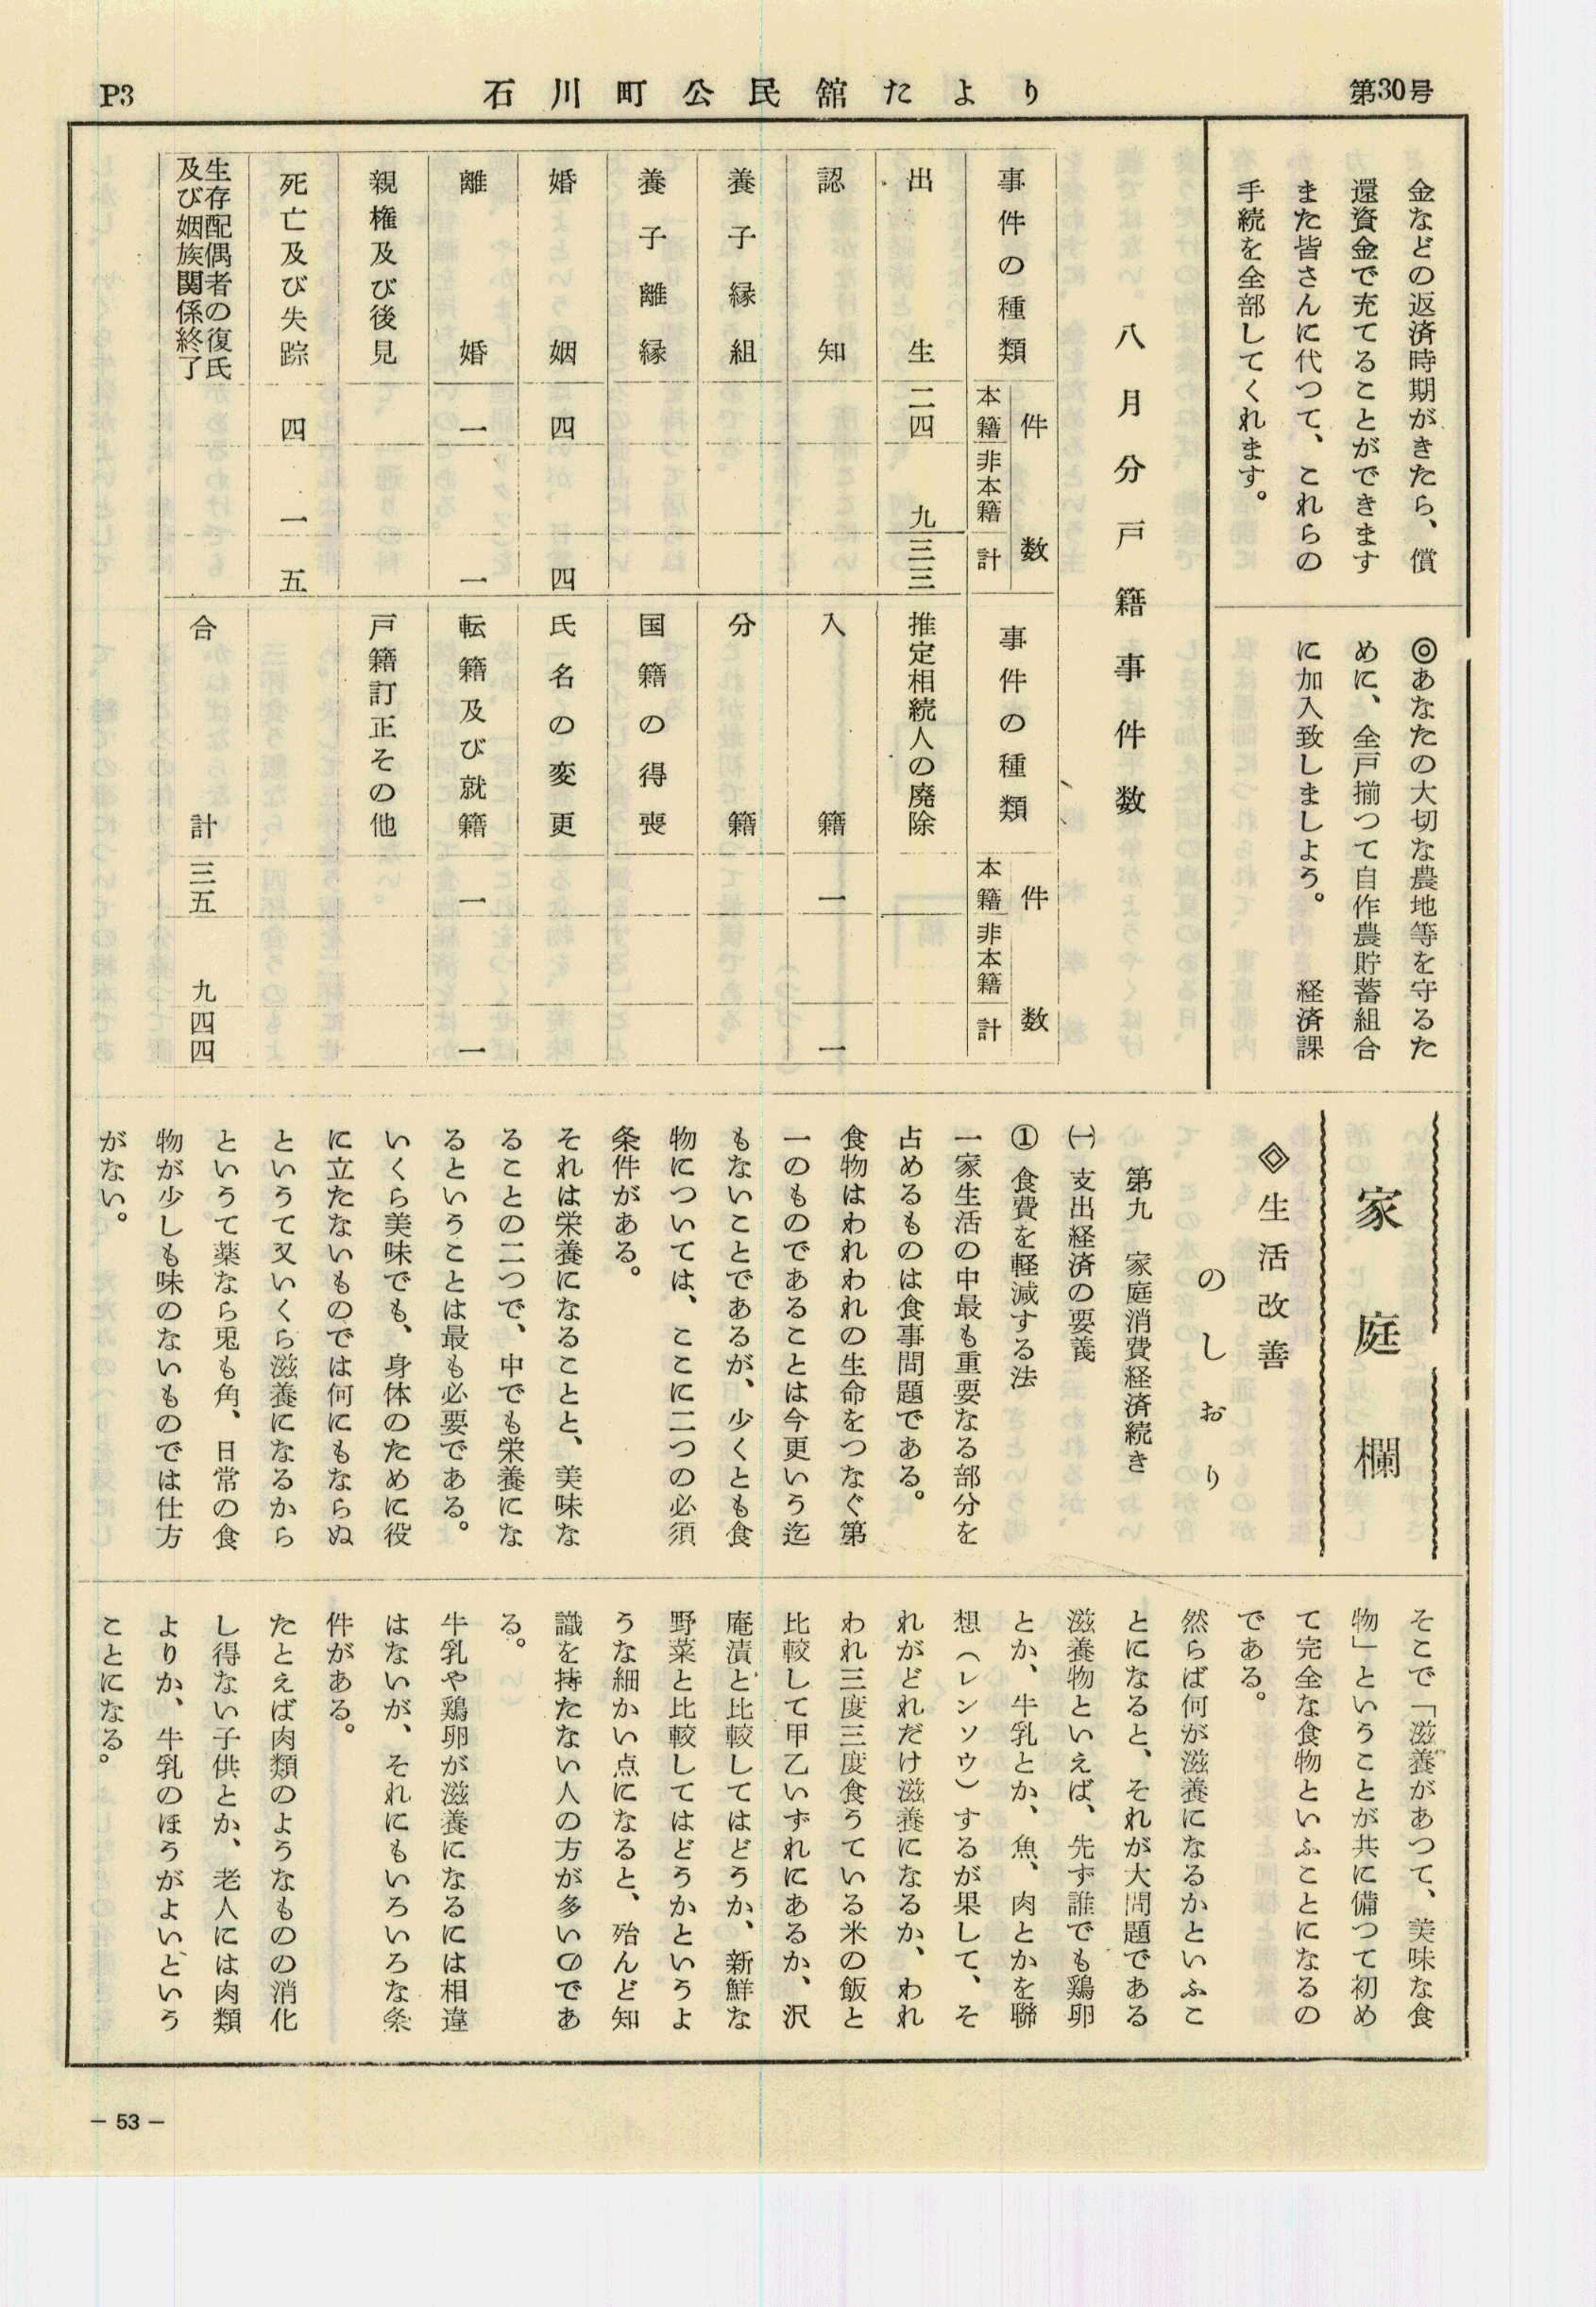 第30号
石川町公民舘たより
P3
金などの返済時期がきたら、償
還資金で充てることができます
また皆さんに代つて、これらの
手続を全部してくれます。
◎あなたの大切な農地等を守るた
めに、全戸揃つて自作農貯蓄組合
に加入致しましよう。　経済課
八月分戸籍事件数
事件の種類　件数　本籍　非本籍　計
出生　二四　九　三三
認知
養子縁組
養子離縁
婚姻　四　四
離婚　一　一
親権及び後見
死亡及び失踪　四　一　五
生存配偶者の復氏
及び姻族関係終了
事件の種類　件数　本籍　非本籍　計
推定相続人の廃除
入籍　一　一
分籍
国籍の得喪
氏名の変更
転籍及び就籍　一　一
戸籍訂正その他
合計　三五　九　四四
家庭欄
◈生活改善
のしおり
第九　家庭消費経済続き
㈠　支出経済の要義
①　食費を軽減する法
一家生活の中最も重要なる部分を
占めるものは食事問題である。
食物はわれわれの生命をつなぐ第
一のものであることは今更いう迄
もないことであるが、少くとも食
物については、ここに二つの必須
条件がある。
それは栄養になることと、美味な
ることの二つで、中でも栄養にな
るということは最も必要である。
いくら美味でも、身体のために役
に立たないものでは何にもならぬ
というて又いくら滋養になるから
というて薬なら兎も角、日常の食
物が少しも味のないものでは仕方
がない。
そこで「滋養があつて、美味な食
物」ということが共に備つて初め
て完全な食物といふことになるの
である。
然らば何が滋養になるかといふこ
とになると、それが大問題である
滋養物といえば、先ず誰でも鶏卵
とか、牛乳とか、魚、肉とかを聯
想（レンソウ）するが果して、そ
れがどれだけ滋養になるか、われ
われ三度三度食うている米の飯と
比較して甲乙いずれにあるか、沢
庵漬と比較してはどうか、新鮮な
野菜と比較してはどうかというよ
うな細かい点になると、殆んど知
識を持たない人の方が多いのであ
る。
牛乳や鶏卵が滋養になるには相違
はないが、それにもいろいろな条
件がある。
たとえば肉類のようなものの消化
し得ない子供とか、老人には肉類
よりか、牛乳のほうがよいという
ことになる。
－53－